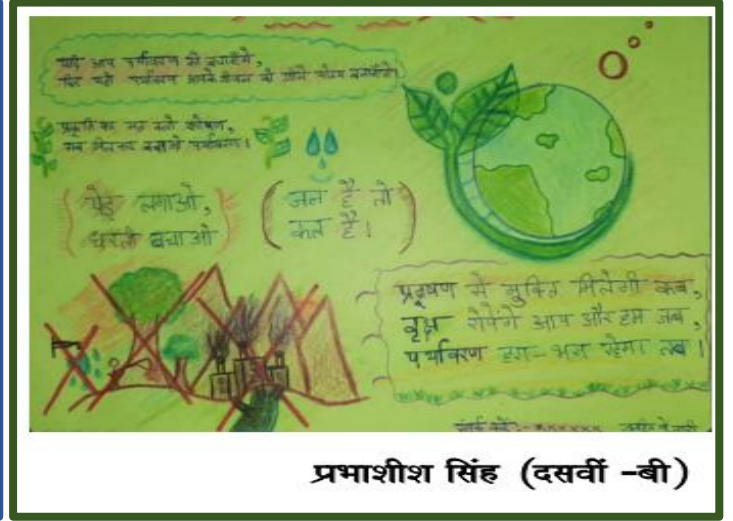 यदि आप पर्यावरण को बचाएँगे,
फिर यही पर्यावरण आपके जीवन को जीने योग्य बनाएगा।
प्रकृति का मत करो शोषण,
सब मिलकर बचाओ पर्यावरण।
पेड़ लगाओ,
धरती बचाओ
जल है तो
कल है।
प्रदूषण से मुक्ति मिलेगी कब,
वृक्ष रोपेंगे आप और हम जब,
पर्यावरण हरा-भरा रहेगा तब।
संपर्क करें:- xxxxxx
प्रभाशीश सिंह (दसवीं -बी)